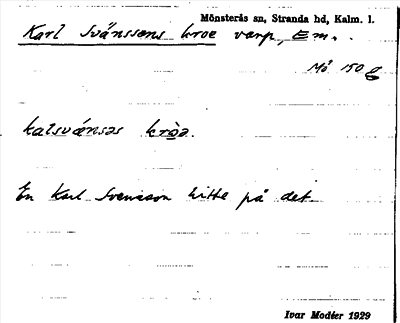 Mönsterås sn, Stranda hd, Kalm. l.
Karl Svänssens kroe varp, Em.
Mö 150 g
kalsvǽnsəs krò̱ə.
En Karl Svensson hitte på det.
Ivar Modéer 1929